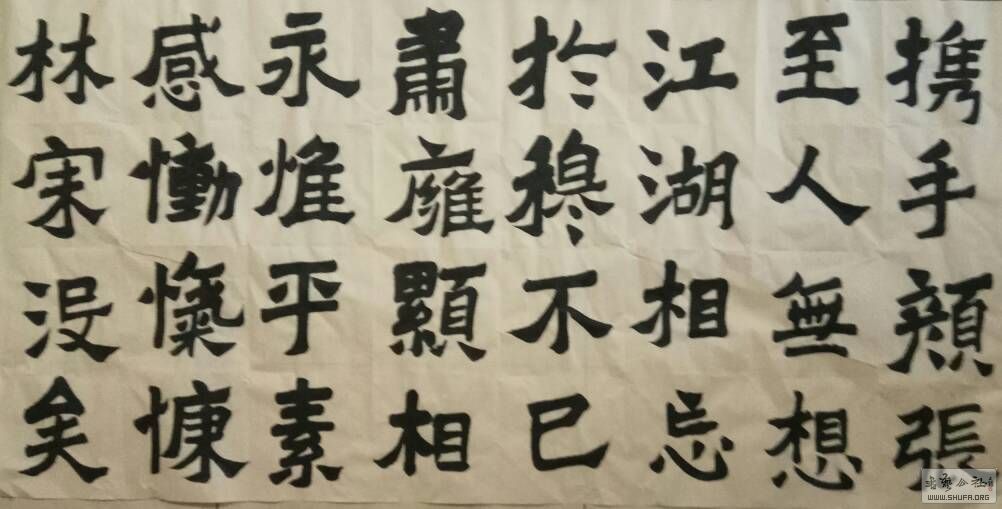 携手顏張
至人無想
江湖相忘
於穆不已
肅雍顯相
永惟平素
感慟愾慷
林宋没矣
书艺公社
WWW.SHUFA.ORG